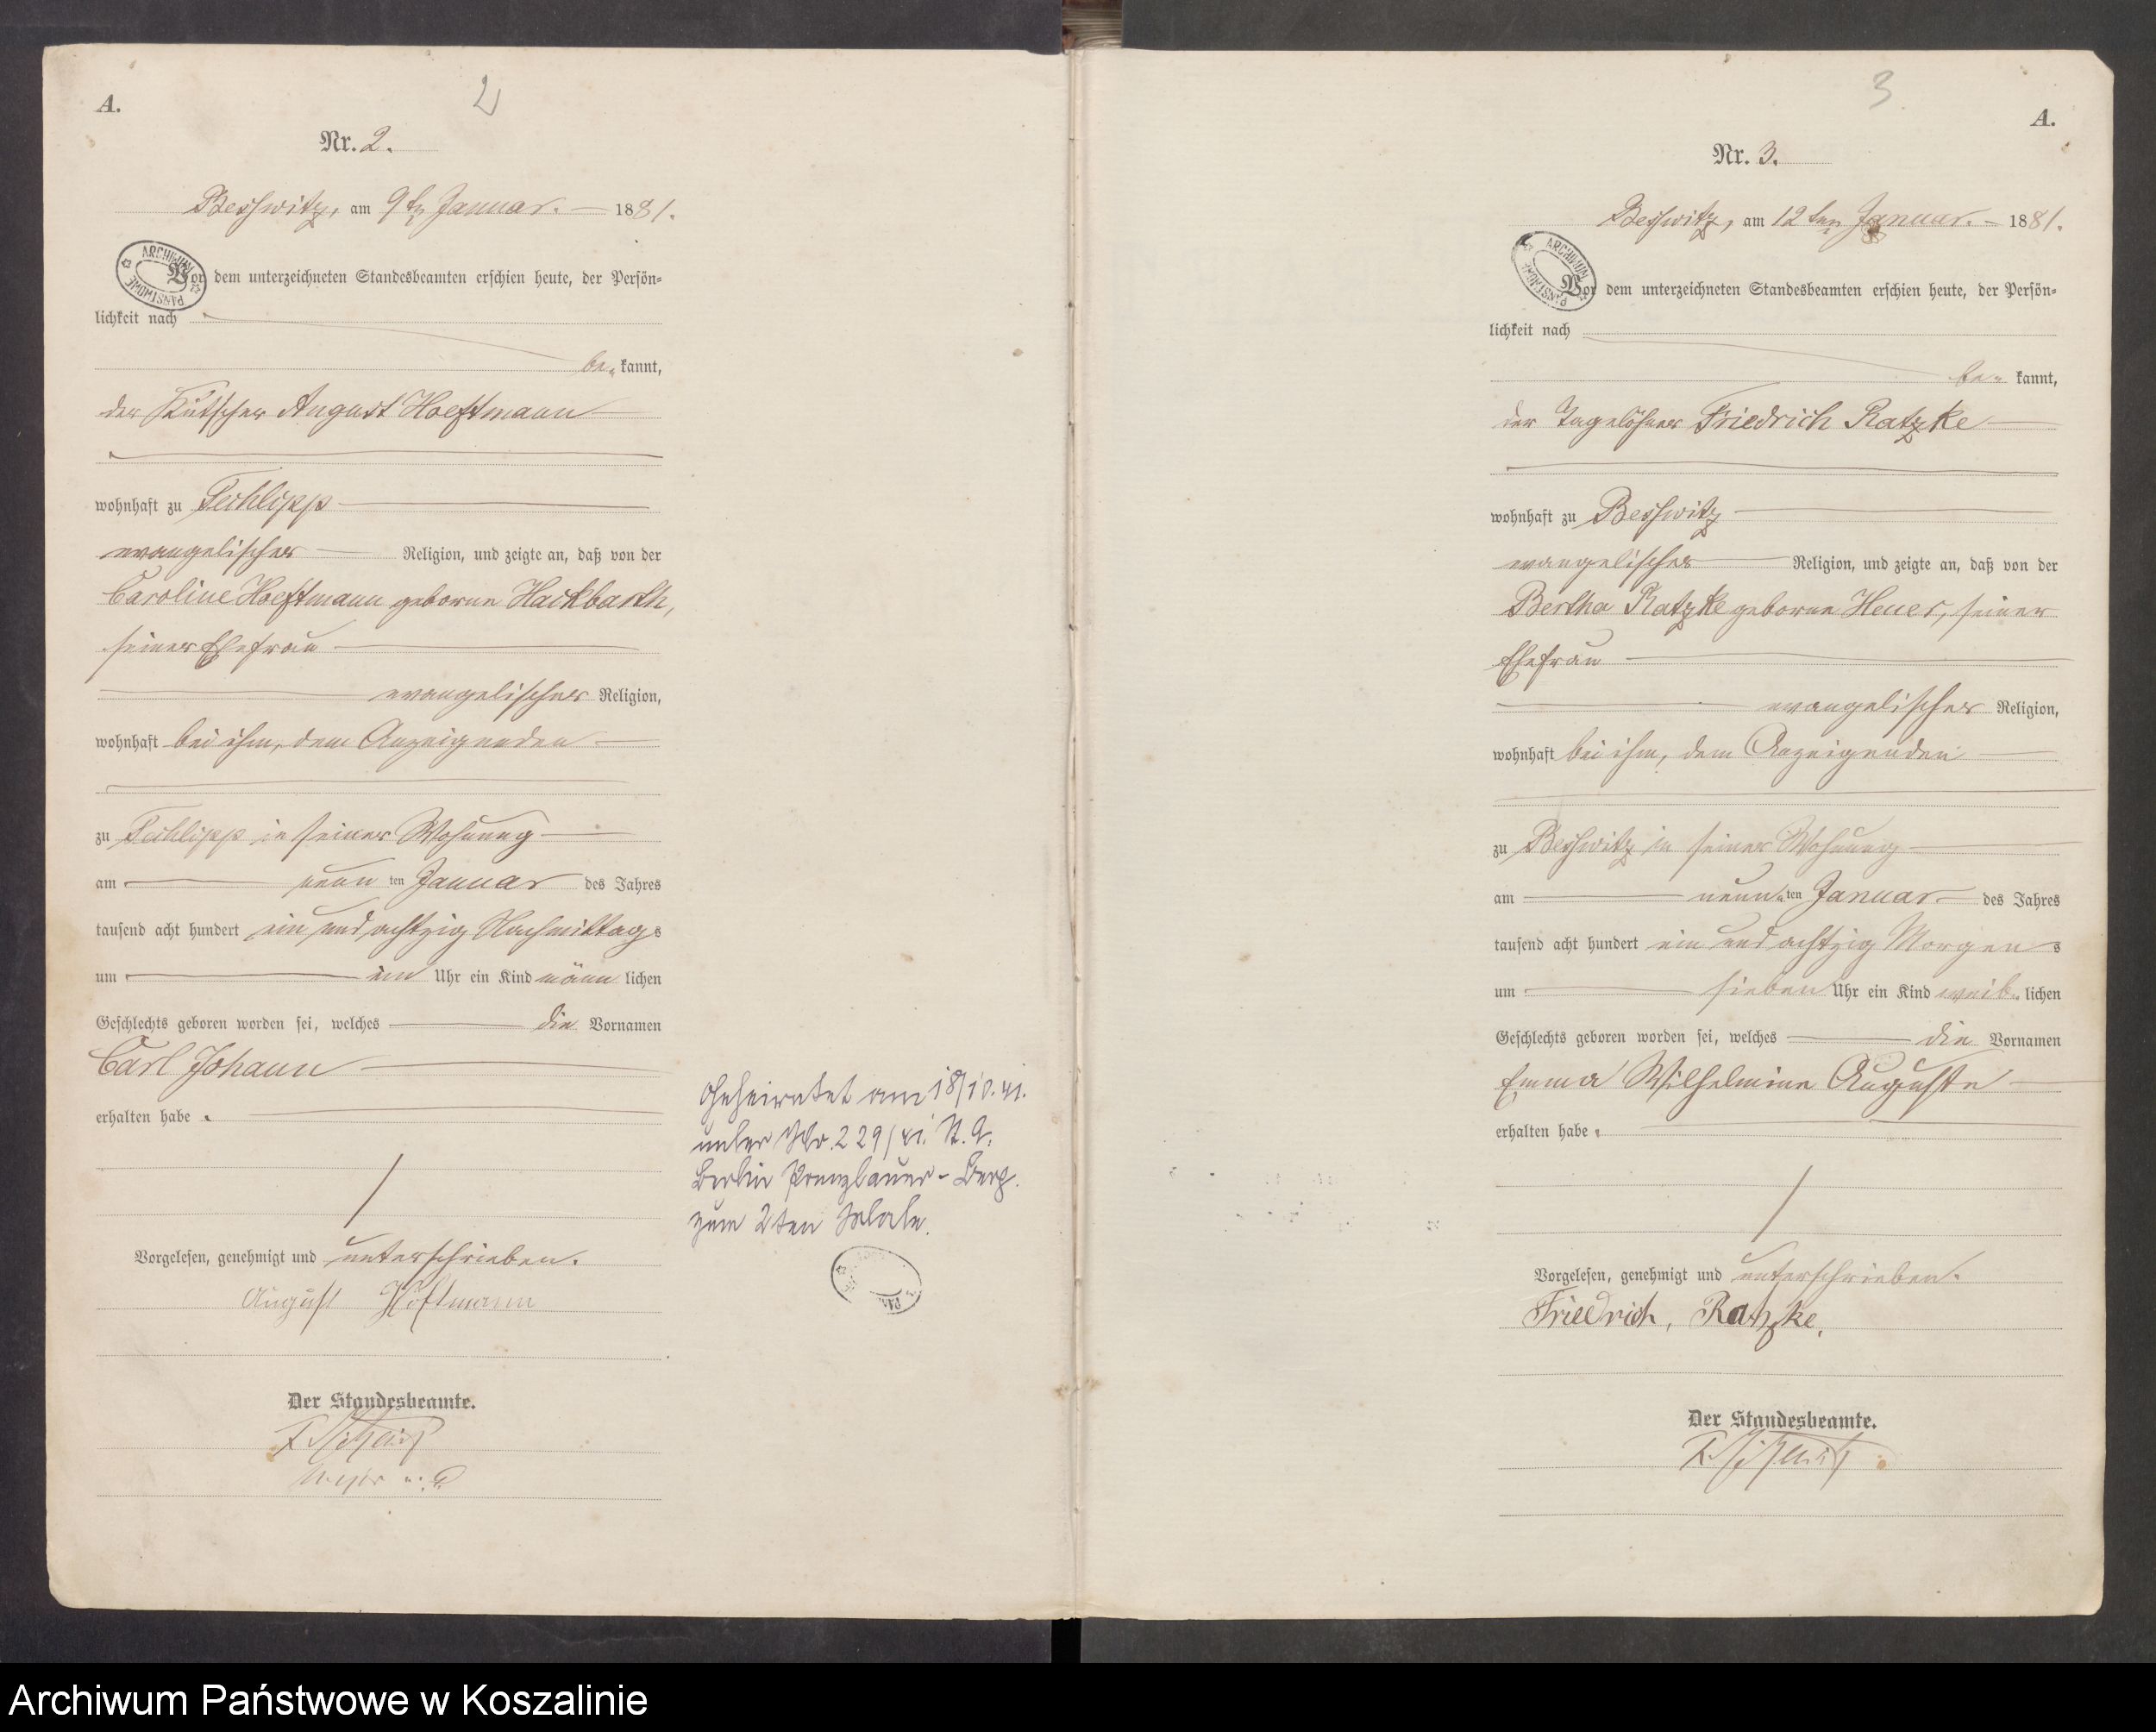 A.
2
Nr. 2.
Besswitz, am 9ten Januar. 1881.
Vor dem unterzeichneten Standesbeamten erschien heute, der Persön-
lichkeit nach
be- kannt,
der Kutscher August Hoeftmann
wohnhaft zu Techlipp
evangelischer Religion, und zeigte an, daß von der
Caroline Hoeftmann geborne Hackbarth,
seiner Ehefrau
evangelischer Religion,
wohnhaft bei ihm, dem Anzeigenden
zu Techlipp in seiner Wohnung
am neun ten Januar des Jahres
tausend acht hundert ein und achtzig Nachmittags
um ein Uhr ein Kind männ lichen
Geschlechts geboren worden sei, welches die Vornamen
Carl Johann
erhalten habe.
Vorgelesen, genehmigt und unterschrieben.
August Höftmann
Der Standesbeamte.
Geheiratet am 18/10.41.
unter Nr. 229/41. St. A.
Berlin Prenzlauer-Berg.
zum 2ten Male.
ARCHIWUM PAŃSTWOWE
3
A.
Nr. 3.
Besswitz, am 12ten Januar. 1881.
Vor dem unterzeichneten Standesbeamten erschien heute, der Persön-
lichkeit nach
be- kannt,
der Tagelöhner Friedrich Ratzke
wohnhaft zu Besswitz
evangelischer Religion, und zeigte an, daß von der
Bertha Ratzke geborne Heuer, seiner
Ehefrau
evangelischer Religion,
wohnhaft bei ihm, dem Anzeigenden
zu Besswitz in seiner Wohnung
am neun ten Januar des Jahres
tausend acht hundert ein und achtzig Morgens
um sieben Uhr ein Kind weib- lichen
Geschlechts geboren worden sei, welches die Vornamen
Emma Wilhelmine Auguste
erhalten habe.
Vorgelesen, genehmigt und unterschrieben.
Friedrich, Ratzke.
Der Standesbeamte.
ARCHIWUM PAŃSTWOWE
Archiwum Państwowe w Koszalinie